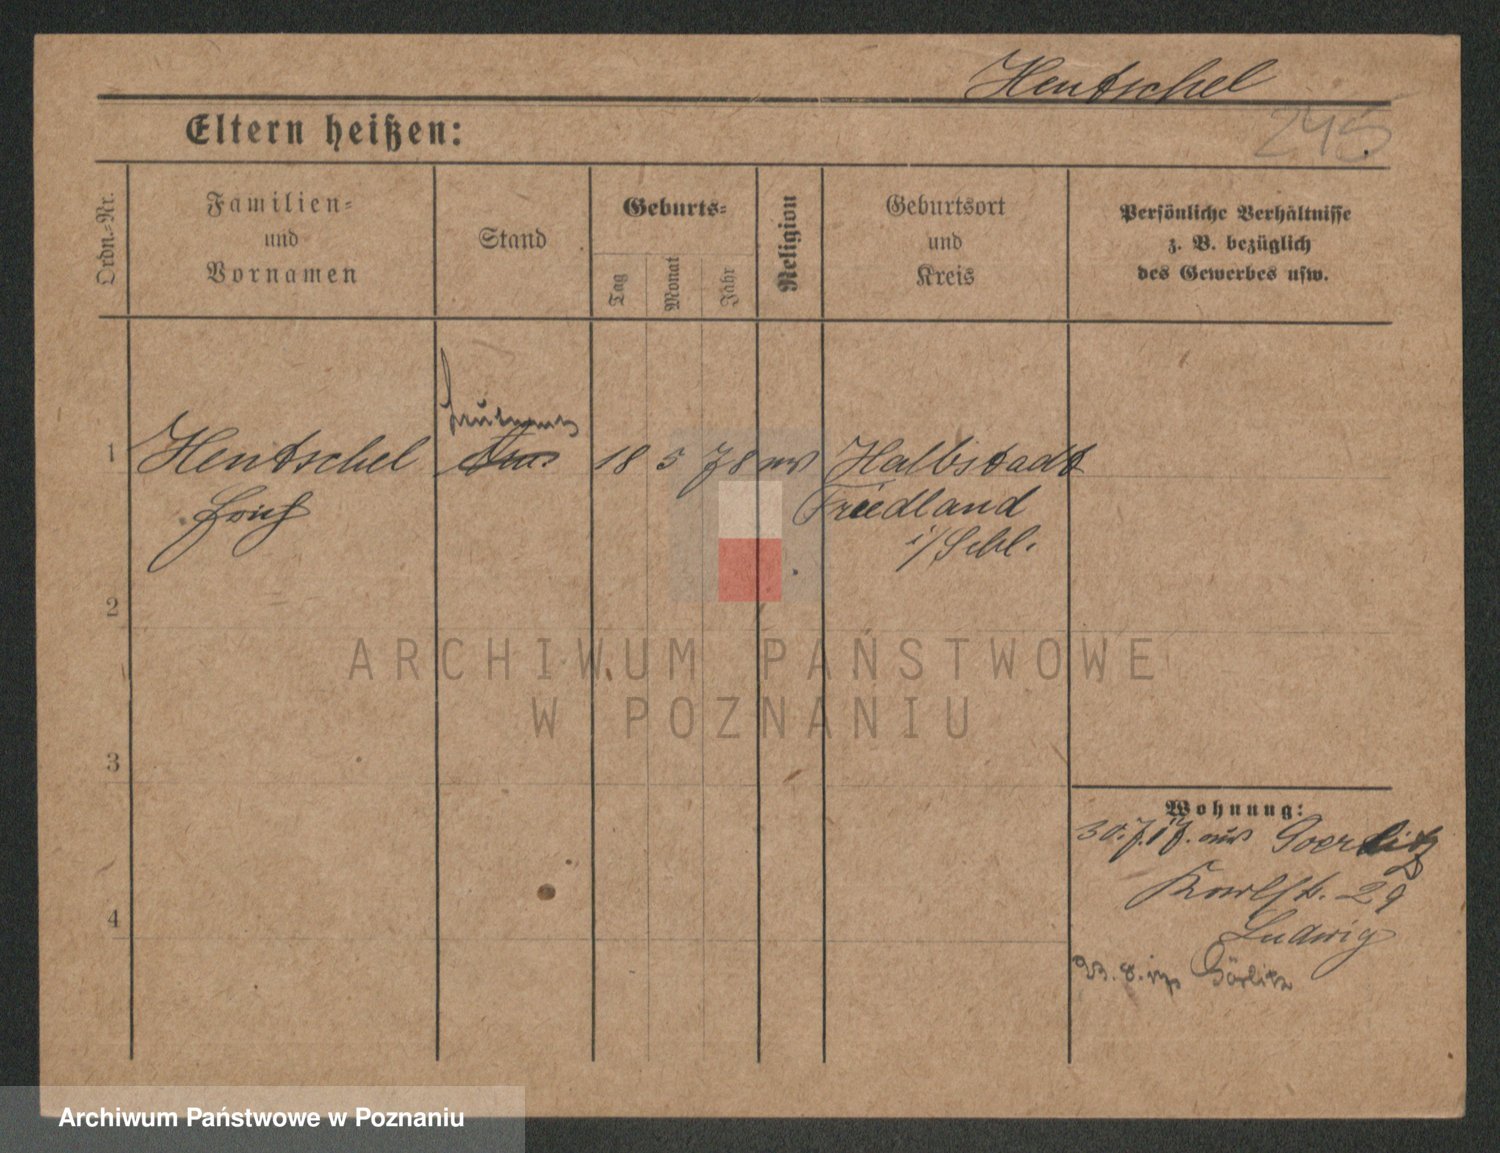 Hentschel
245
Eltern heißen:
Ordn.-Nr.
Familien-
und
Vornamen
Stand
Geburts-
Tag
Monat
Jahr
Religion
Geburtsort
und
Kreis
Persönliche Verhältnisse
z. B. bezüglich
des Gewerbes usw.
Leutnant
1 Hentschel 18 5 78 Halbstadt
Erich Friedland
i/Schl.
2
3
4
Wohnung:
30.7.17. aus Goerlitz
Karlstr. 29
Ludwig
23. 8. Görlitz
ARCHIWUM PAŃSTWOWE
W POZNANIU
Archiwum Państwowe w Poznaniu